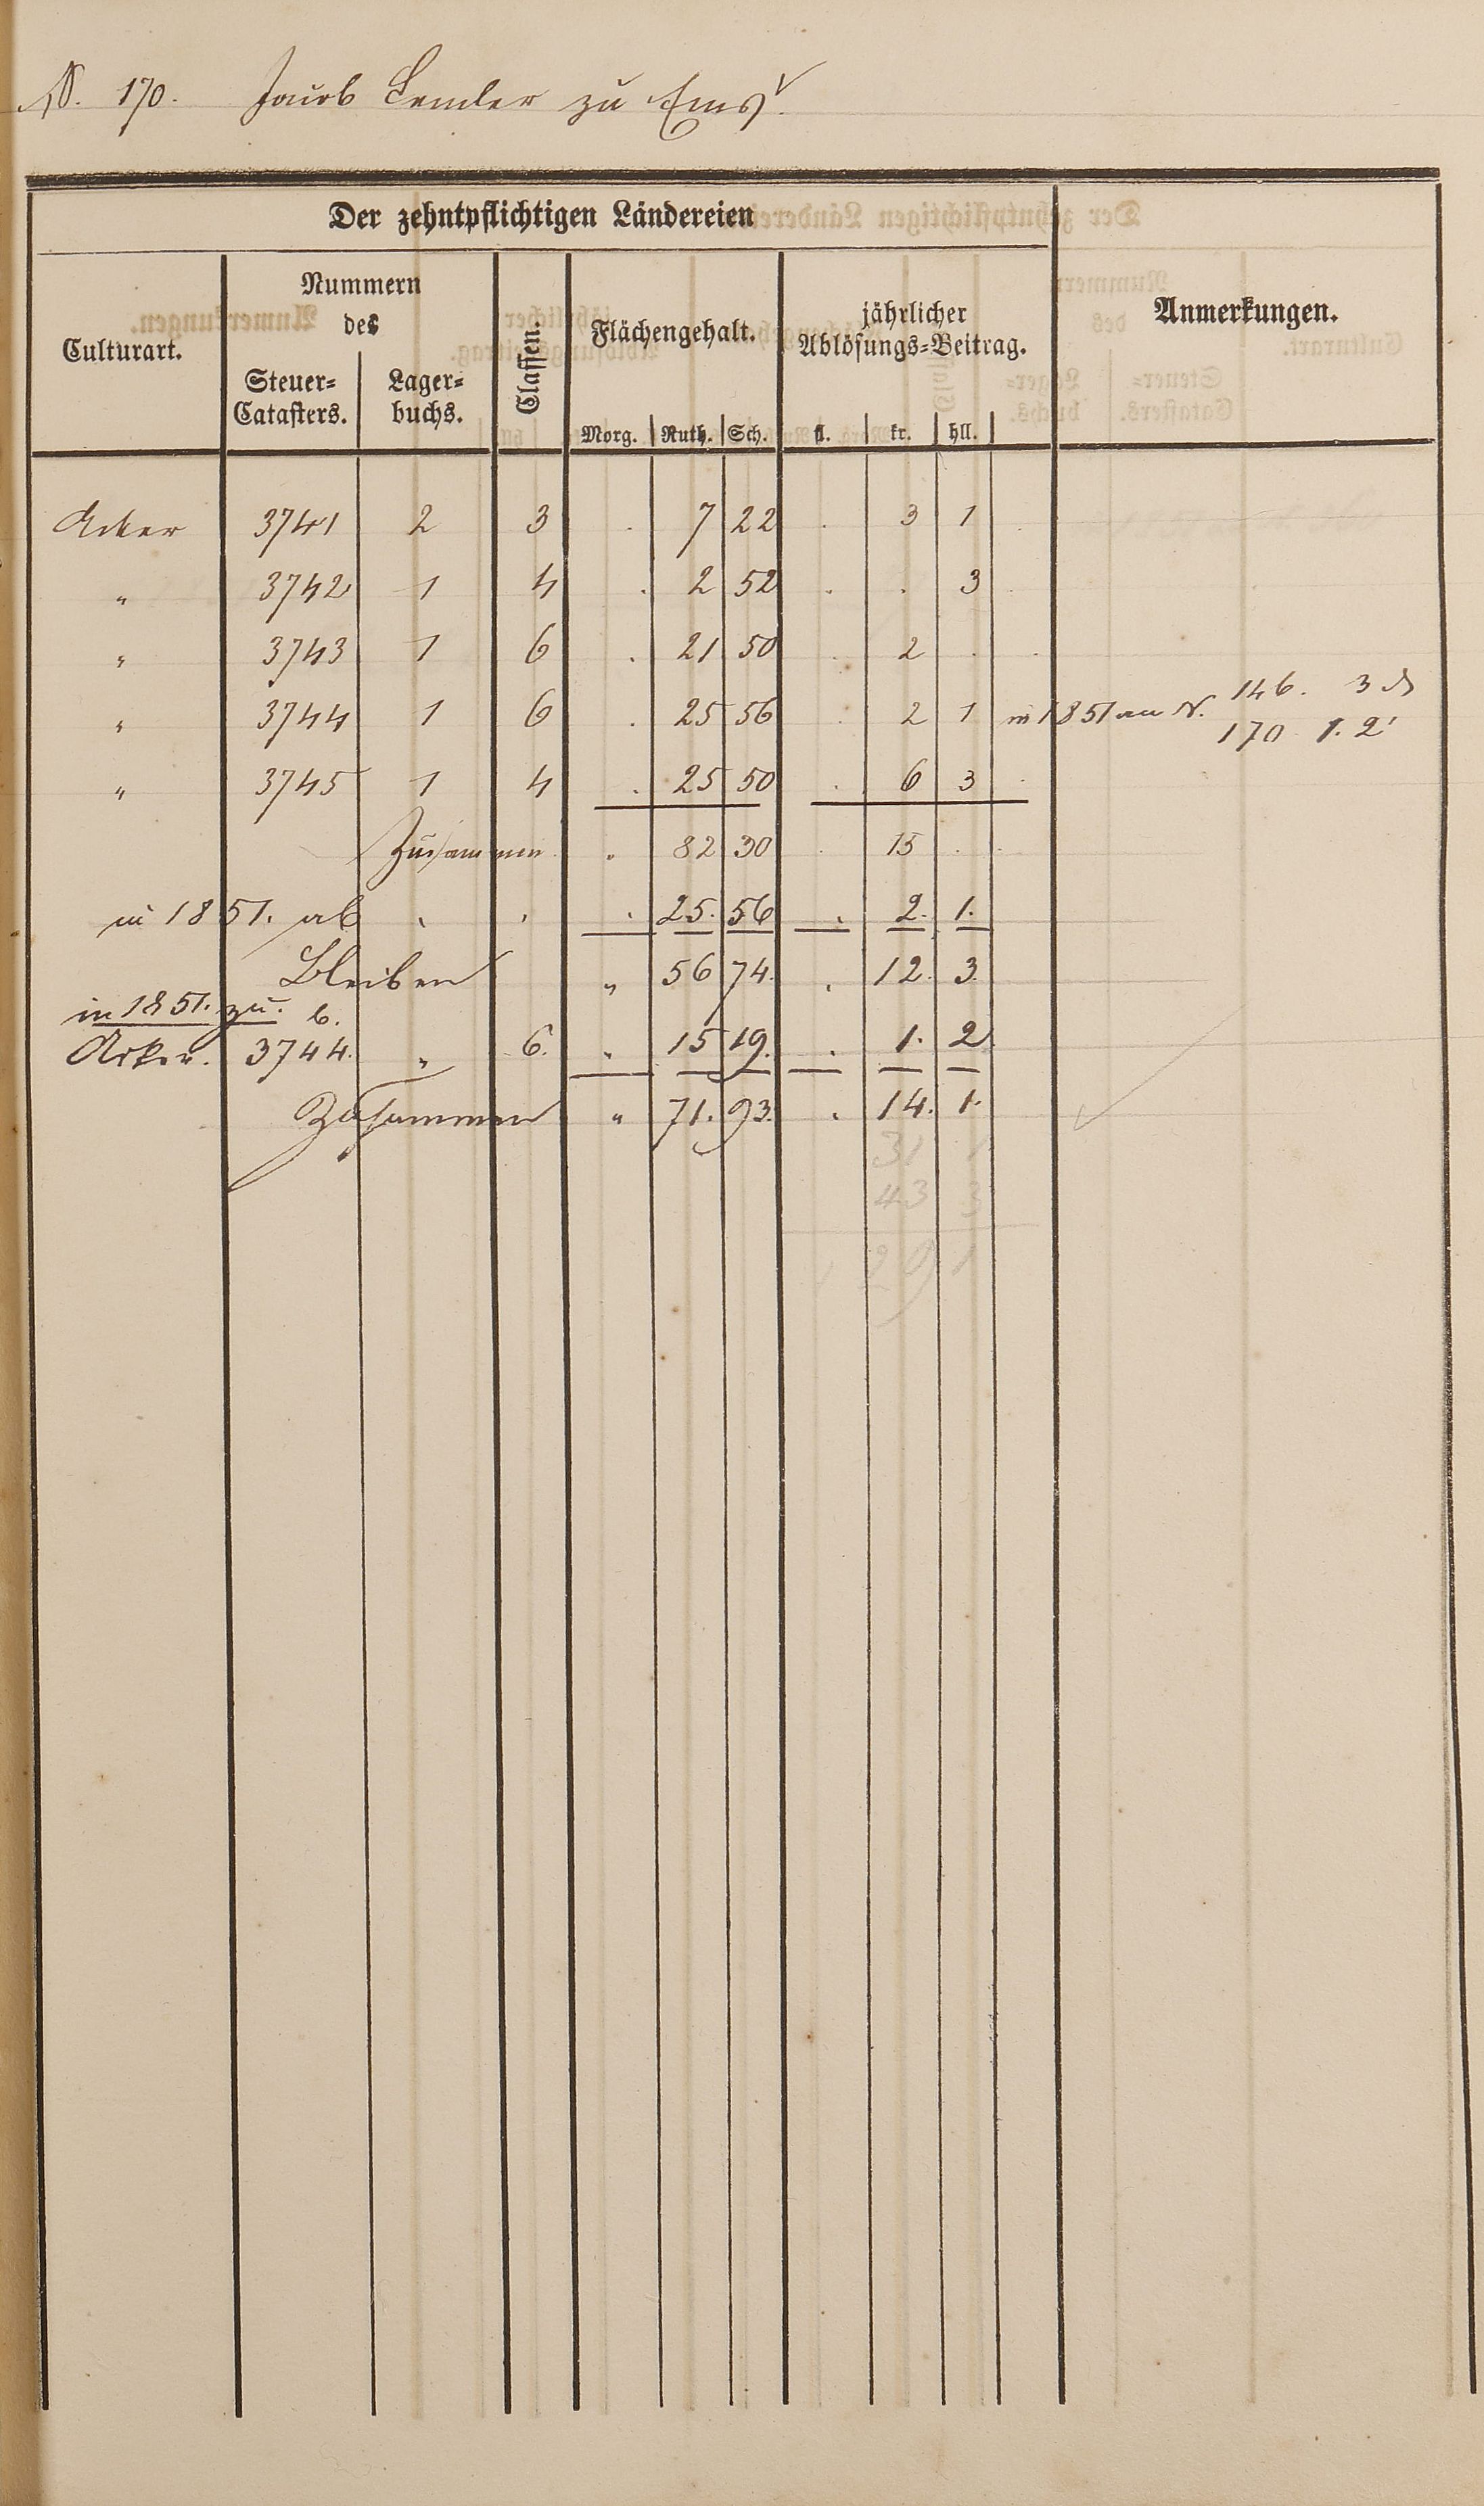 N. 170. Jacob Lemler zu Ems
Der zehntpflichtigen Ländereien
Culturart.
Nummern
des
Steuer=
Catasters.
Lager=
buchs.
Classen.
Flächengehalt.
Morg. Ruth. Sch.
jährlicher
Ablösungs=Beitrag.
fl. kr. hll.
Anmerkungen.
Acker 3741 2 3 . 7 22 . 3 1 .
" 3742 1 4 . 2 52 . . 3 .
" 3743 1 6 . 21 50 . 2 . .
" 3744 1 6 . 25 56 . 2 1 in 1851 an N. 146. 3
170 1. 2
" 3745 1 4 . 25 50 . 6 3 .
Zusammen . 82 30 . 15 . .
in 1851. ab . . . 25. 56 . 2. 1.
Bleiben " 56 74. . 12. 3.
in 1851. zu. b.
Acker. 3744. " 6. " 15 19. . 1. 2.
Zusammen " 71. 93. . 14. 1.
31 1
43 3
1 29 1